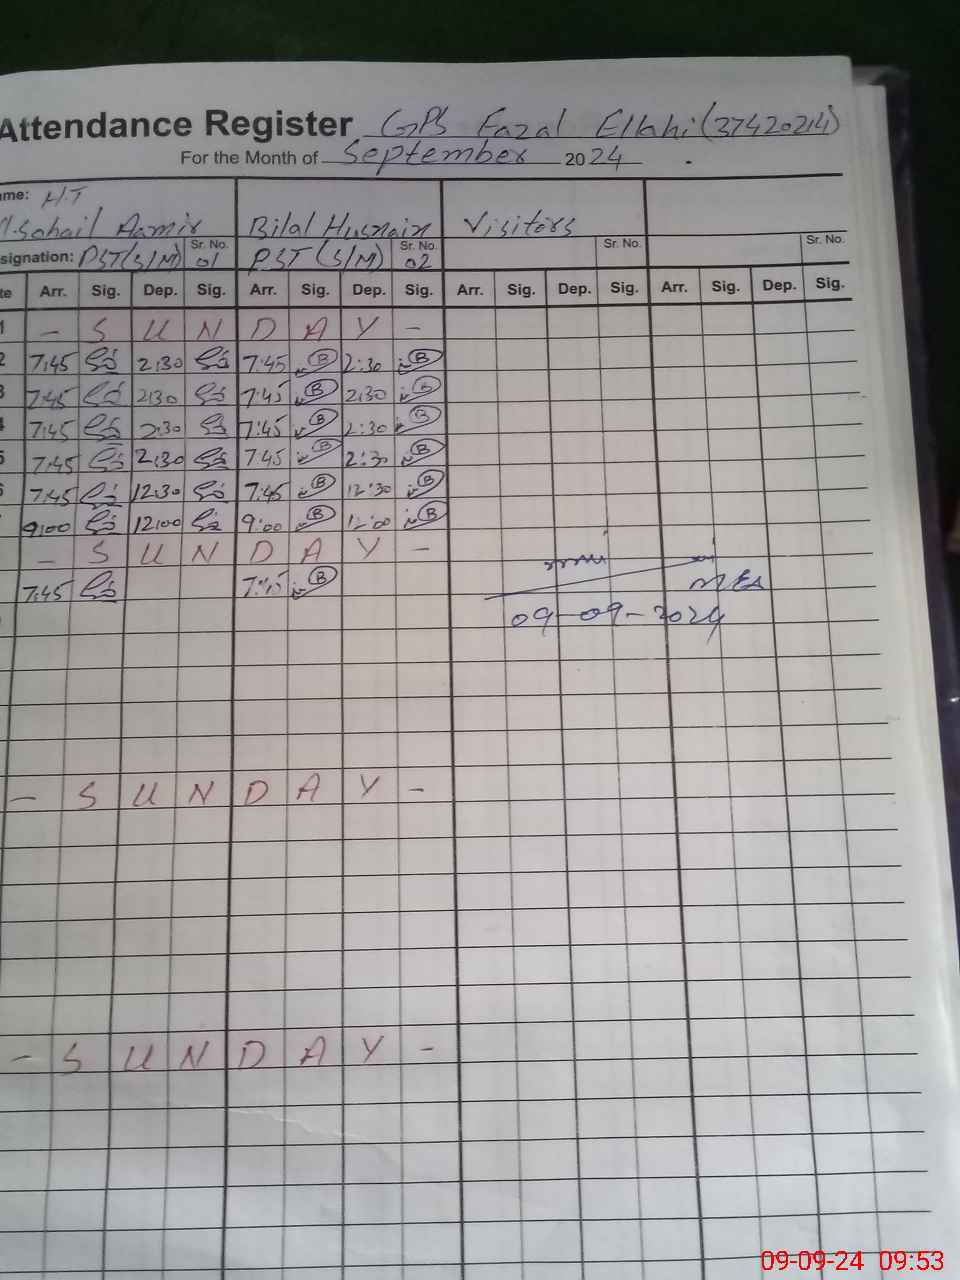 Attendance Register GPS Fazal Ellahi (37420214)
For the Month of September 2024
ame: H.T
M.Sohail Aamir Bilal Husnain Visitors
signation: PST(S/M) Sr. No. 01 PST (S/M) Sr. No. 02 Sr. No. Sr. No.
te Arr. Sig. Dep. Sig. Arr. Sig. Dep. Sig. Arr. Sig. Dep. Sig. Arr. Sig. Dep. Sig.
1 - S U N D A Y -
2 7:45 2:30 7:45 B 2:30 B
3 7:45 2:30 7:45 B 2:30 B
4 7:45 2:30 7:45 B 2:30 B
5 7:45 2:30 7:45 B 2:30 B
6 7:45 12:30 7:45 B 12:30 B
9:00 12:00 9:00 B 12:00 B
- S U N D A Y -
7:45 7:45 B
09-09-2024
- S U N D A Y -
- S U N D A Y -
09-09-24 09:53